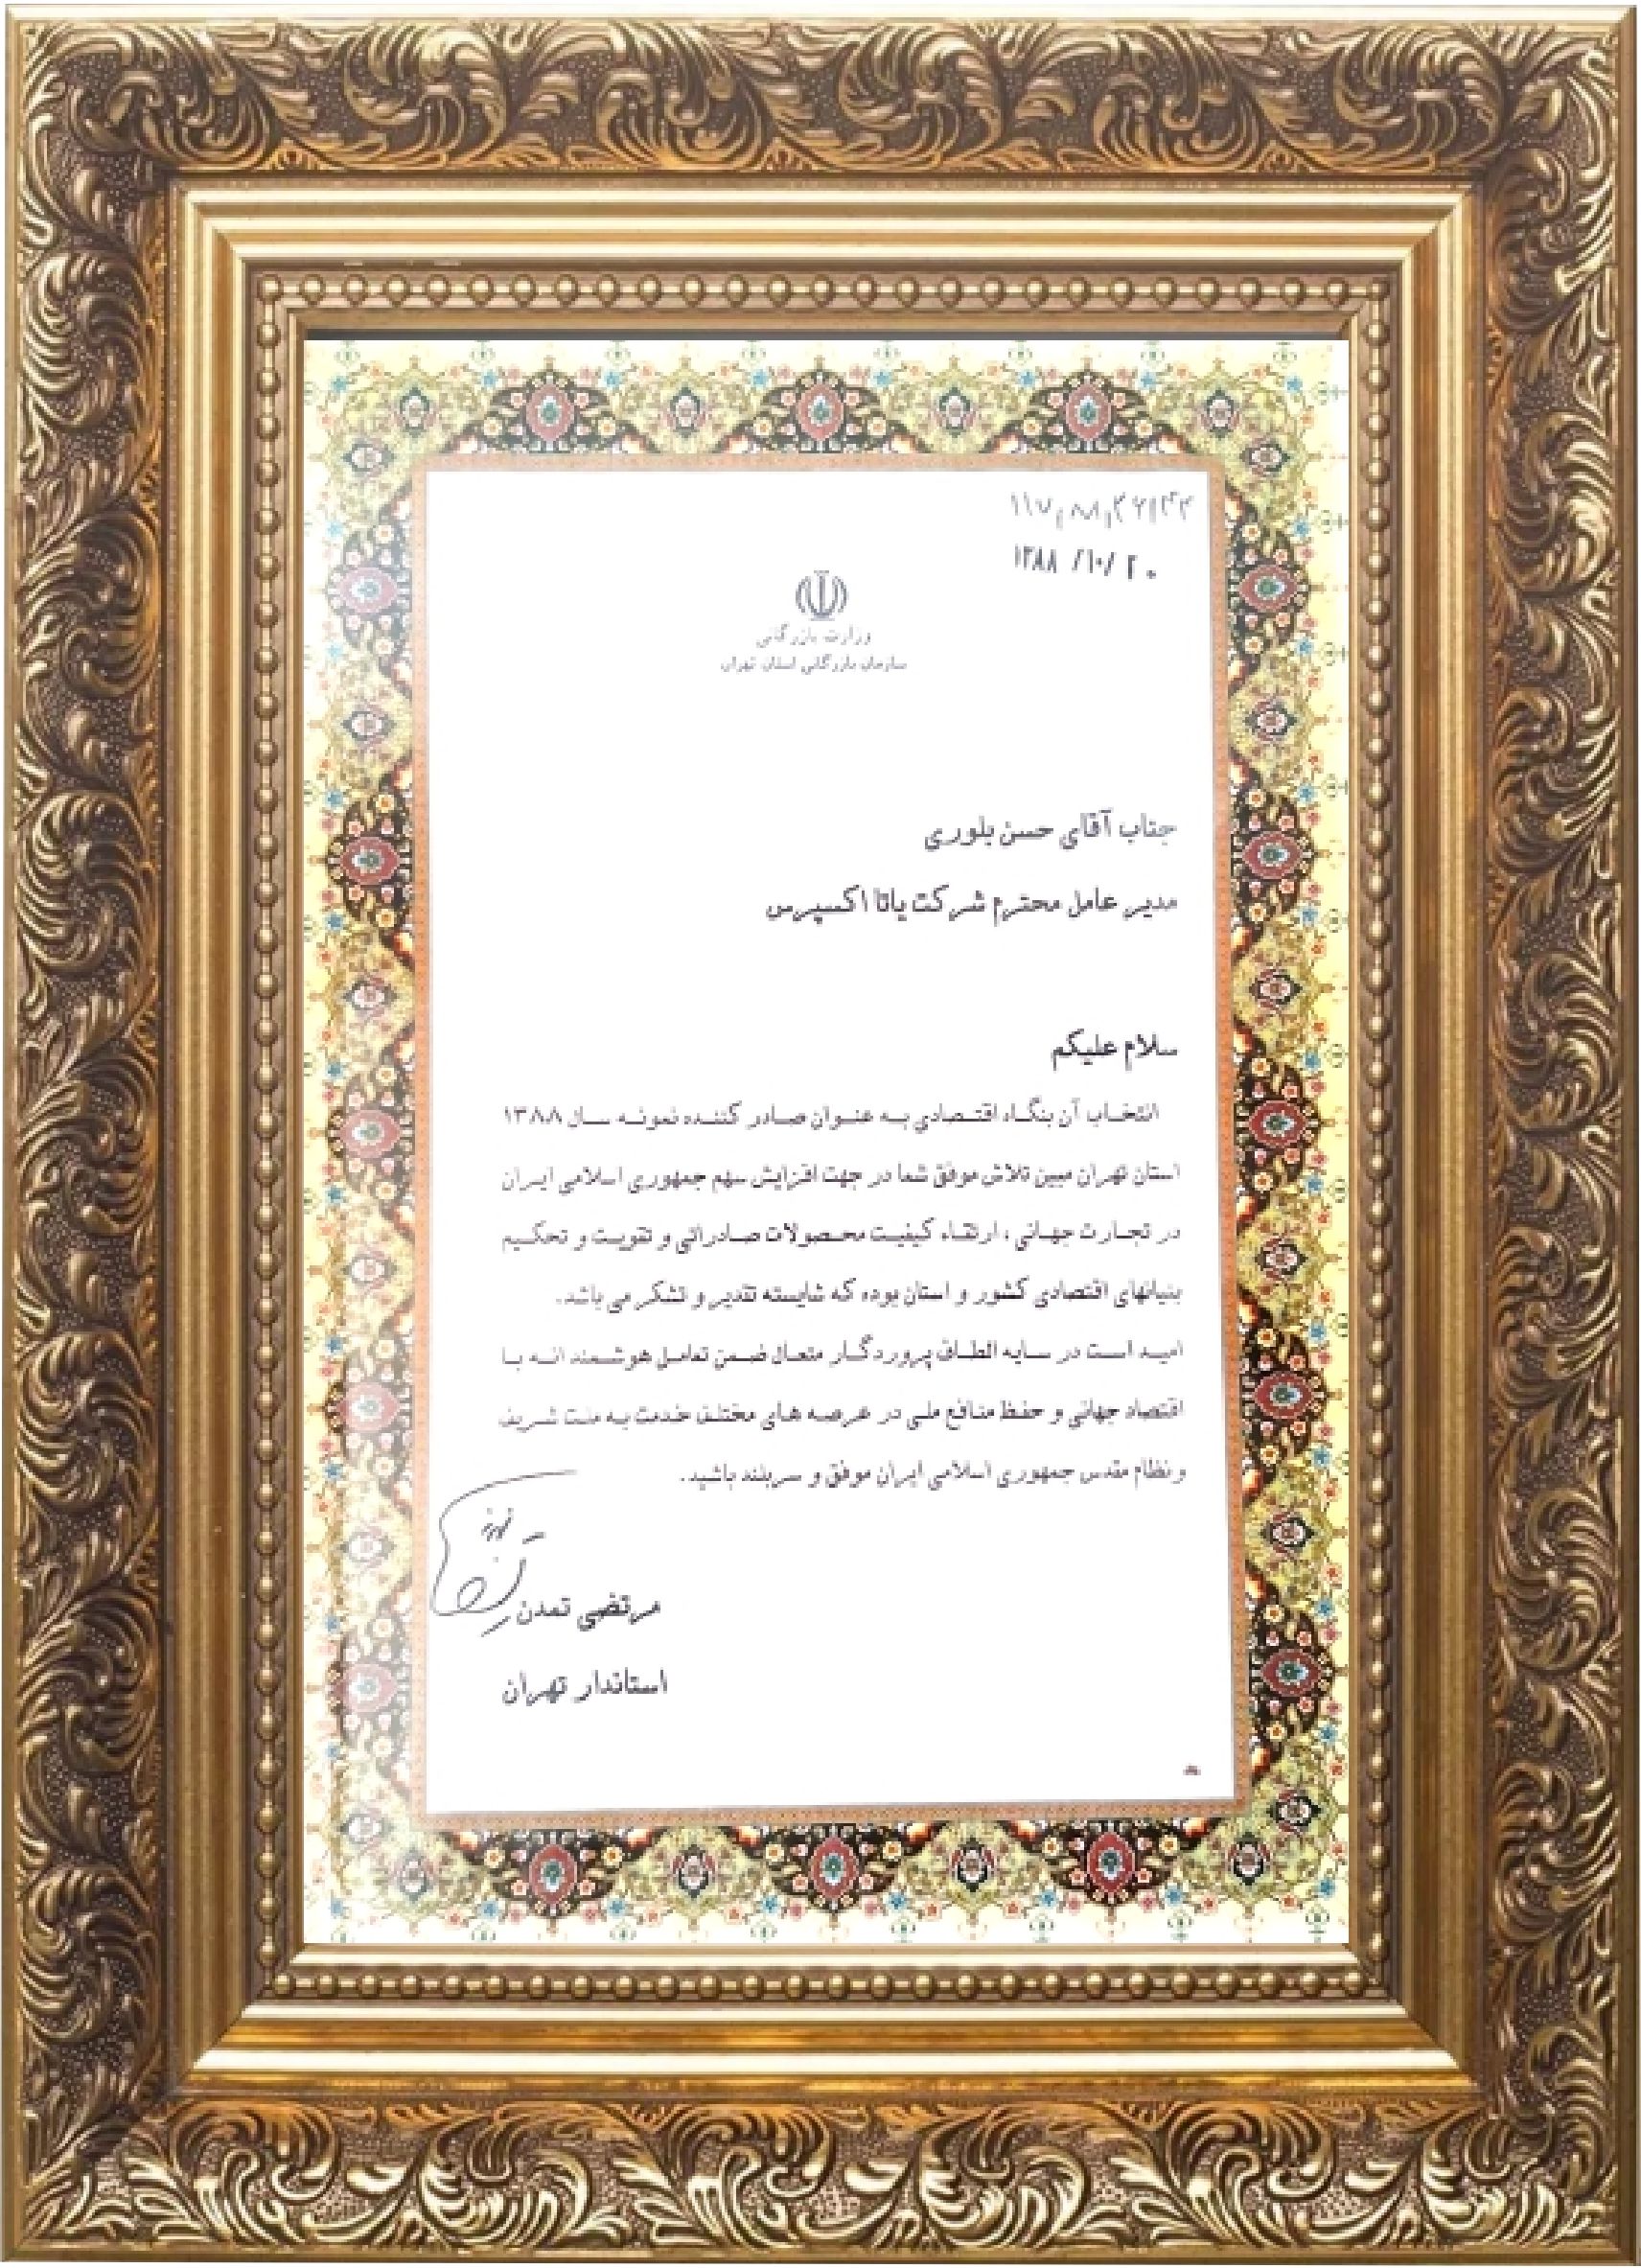 ۱۳۸۸ /۱۰/ ۲۰
وزارت بازرگانی
سازمان بازرگانی استان تهران
جناب آقای حسن بلوری
مدیر عامل محترم شرکت یاتا اکسپرس
سلام علیکم
انتخاب آن بنگاه اقتصادي به عنوان صادر کننده نمونه سال ۱۳۸۸
استان تهران مبین تلاش موفق شما در جهت افزایش سهم جمهوری اسلامی ایران
در تجارت جهانی ، ارتقاء کیفیت محصولات صادراتی و تقویت و تحکیم
بنیانهای اقتصادی کشور و استان بوده که شایسته تقدیر و تشکر می باشد.
امید است در سایه الطاف پروردگار متعال ضمن تعامل هوشمند انه با
اقتصاد جهانی و حفظ منافع ملی در عرصه های مختلف خدمت به ملت شریف
و نظام مقدس جمهوری اسلامی ایران موفق و سربلند باشید.
مرتضی تمدن
استاندار تهران